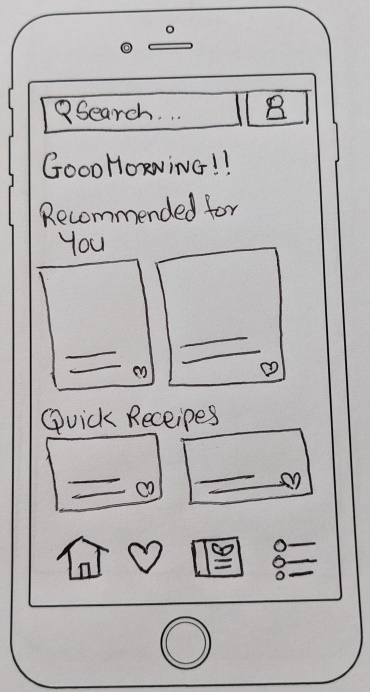 Search...
GOODMORNING!!
Recommended for
You
Quick Receipes